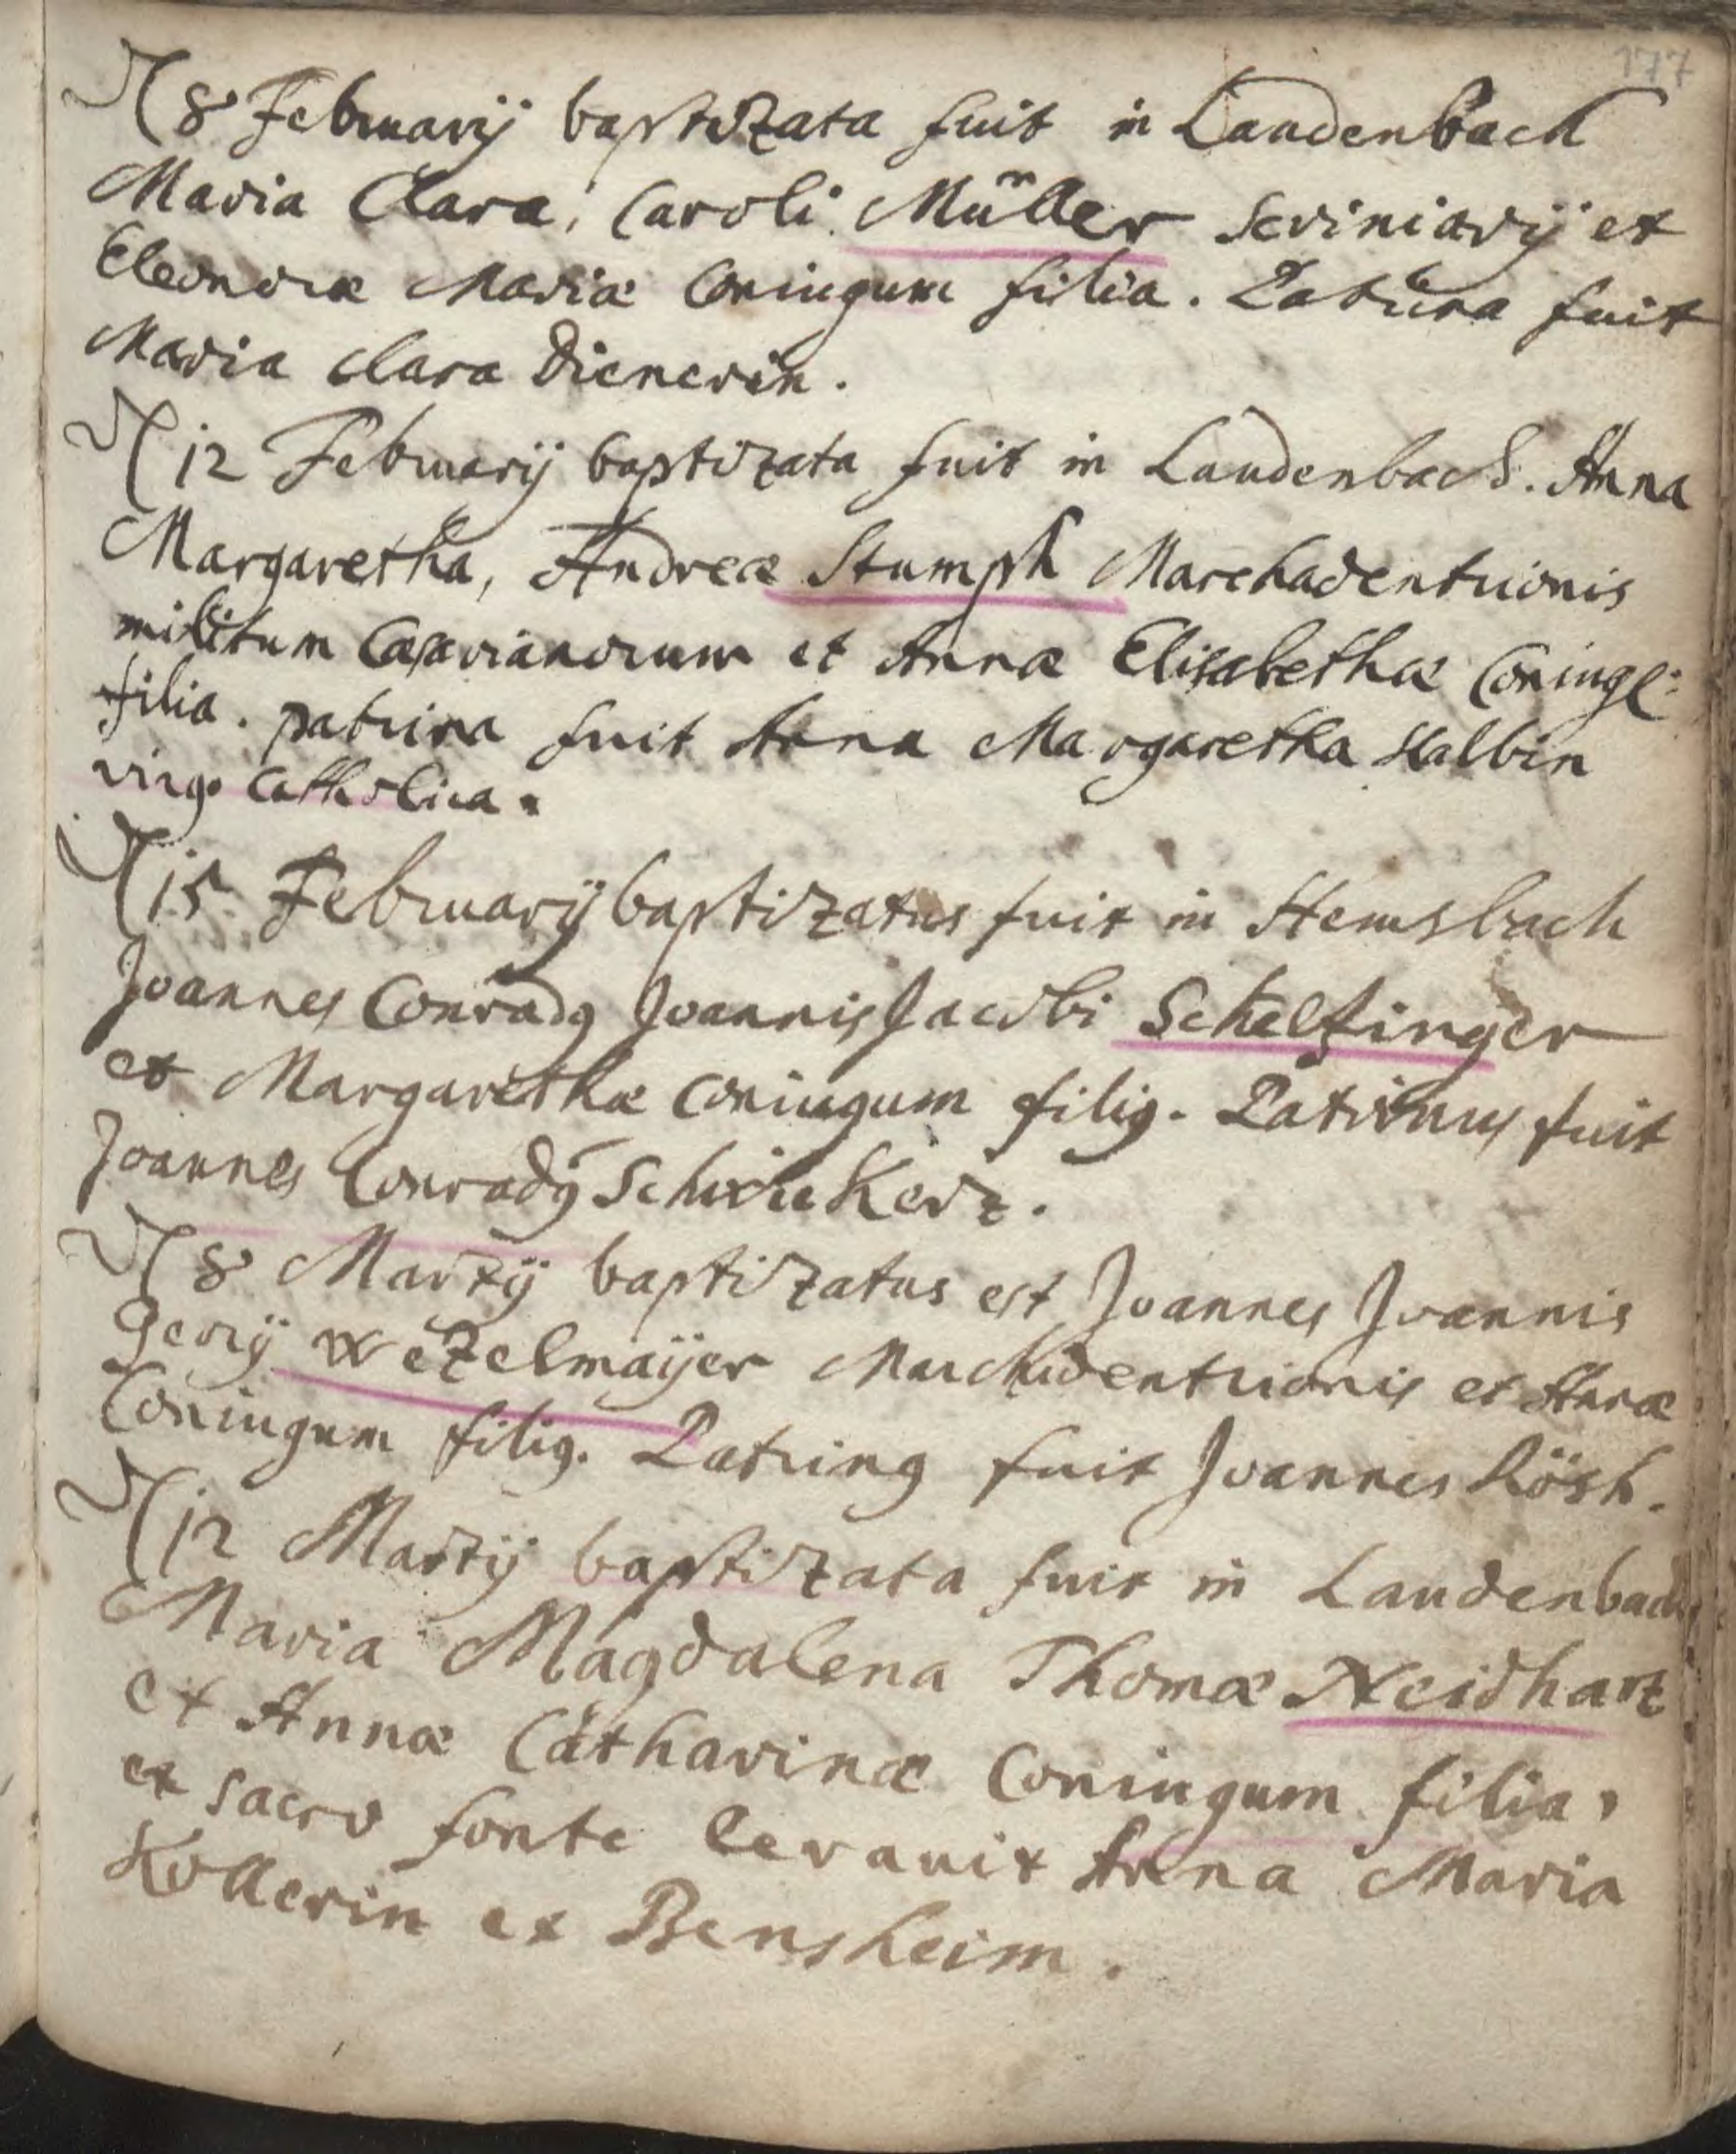 177
8 Februarij baptizata fuit in Laudenbach
Maria Clara, Caroli Müller Scriniarij et
Eleonoræ Mariæ Coniugum filia. Patrina fuit
Maria Clara Dienerin.
12 Februarij baptizata fuit in Laudenbach. Anna
Margaretha, Andreæ Stumph
militum Cæsarianorum et Annæ Elisabethæ Coniug:
filia. patrina fuit Anna Margaretha Kalbin
virgo Catholica.
15 Februarij baptizatus fuit in Hemsbach
Joannes Conradq Joannis Jacobi Schelfinger
et Margarethæ Coniugum filiq. Patrinus fuit
Joannes Conradq
8 Martij baptizatus est Joannes Joannis
Georij Wezelmaÿer et Annæ
Coniugum filiq. Patrinq fuit Joannes Rösh.
12 Martij baptizata fuit in Laudenbach
Maria Magdalena Thomæ Neidhart
et Annæ Catharinæ Coniugum filia,
ex sacro fonte levauit Anna Maria
Kollerin ex Bensheim.